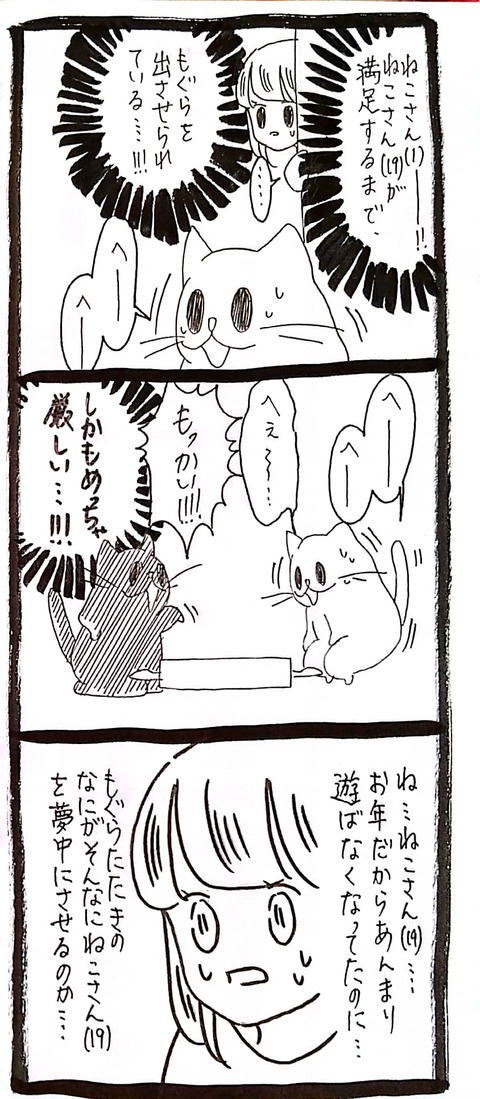 ねこさん(1)――!!
ねこさん(19)が
満足するまで、
もぐらを
出させられ
ている…!!!
……
へ
へ
へ
へ
へぇ〜…
もっかい!!!!
しかもめっちゃ
厳しい…!!!
ね…ねこさん(19)…
お年だからあんまり
遊ばなくなってたのに…
もぐらたたきの
なにがそんなにねこさん(19)
を夢中にさせるのか…